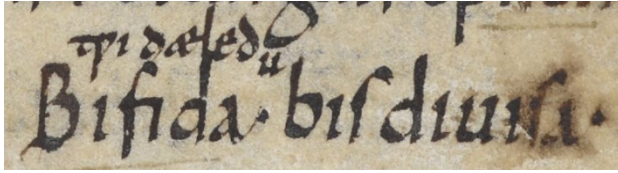 tƿi dæledu
Bifida· bis diuisa·